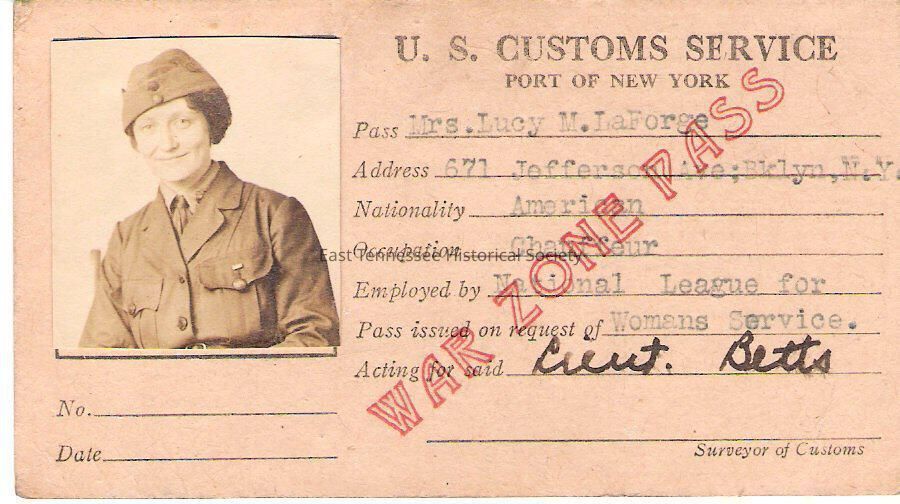 U. S. CUSTOMS SERVICE
PORT OF NEW YORK
Pass Mrs. Lucy M. LaForge
Address 671 Jefferson Ave;Bklyn,N.Y.
Nationality American
Occupation Chauffeur
East Tennessee Historical Society
Employed by National League for
Pass issued on request of Womans Service.
Acting for said Lieut. Betts
WAR ZONE PASS
No.
Date
Surveyor of Customs